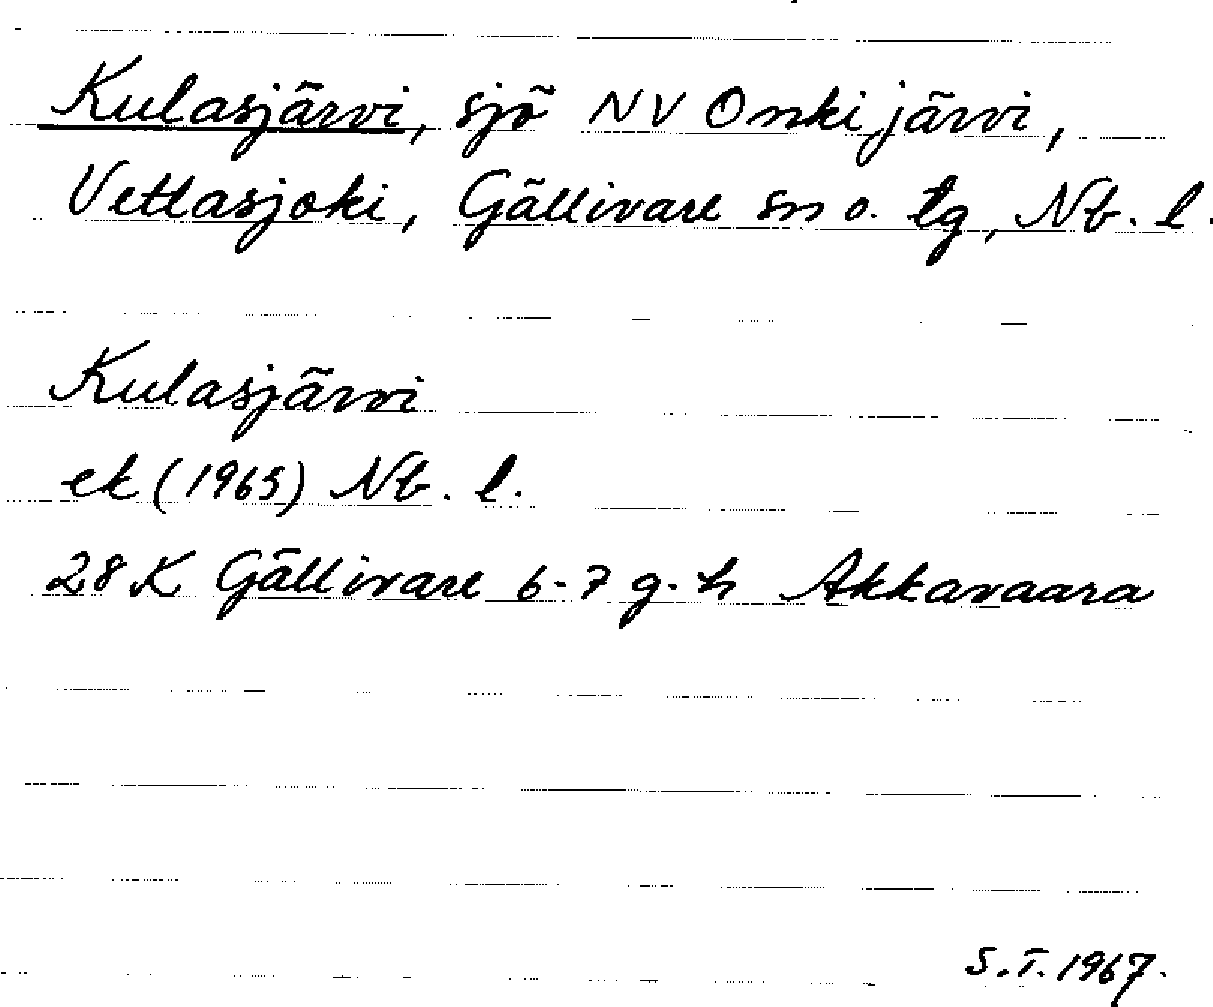 Kulasjärvi, sjö NV Onkijärvi,
Vettasjoki, Gällivare sn o. tg, Nb. l.
Kulasjärvi
ek (1965) Nb. l.
28 K Gällivare 6-7 g-h Akkavaara
S.T. 1967.